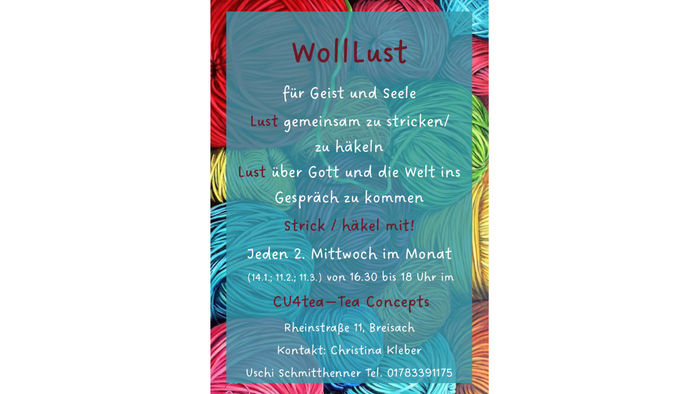 WollLust
für Geist und Seele
Lust gemeinsam zu stricken/
zu häkeln
Lust über Gott und die Welt ins
Gespräch zu kommen
Strick / häkel mit!
Jeden 2. Mittwoch im Monat
(14.1.; 11.2.; 11.3.) von 16.30 bis 18 Uhr im
CU4tea—Tea Concepts
Rheinstraße 11, Breisach
Kontakt: Christina Kleber
Uschi Schmitthenner Tel. 01783391175